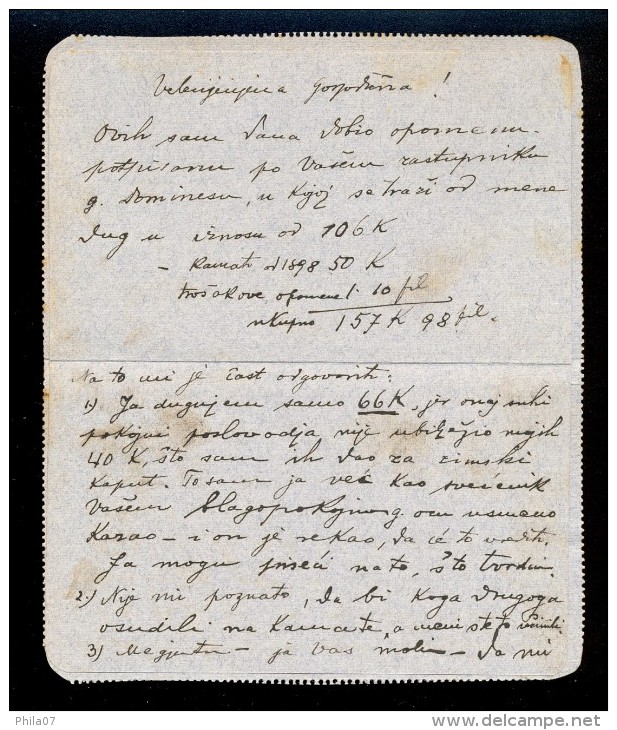 Velenjenjena gospodična!
Ovih sam dana dobio opomenu
potpisanu po Vašem zastupniku
g. Dominesu, u kojoj se traži od mene
dug u iznosu od 106 K
– Kamate od 1898 50 K
troškove opomene 1. 10 fil
ukupno 157 K 98 fil.
Na to mi je čast odgovoriti:
1) Ja dugujem samo 66 K, jer onaj suhi
pokojni poslovodja nije ubilježio mojih
40 K, što sam ih dao za zimski
kaput. To sam ja već kao svećenik
Vašem blagopokojnog ocu usmeno
kazao – i on je rekao, da će to urediti.
Ja mogu priseći na to, što tvrdim.
2) Nije mi poznato, da bi koga drugoga
osudili na kamate, a meni ste to učinili.
3) Megjutim – ja Vas molim – da mi
Phila07
www.delcampe.net